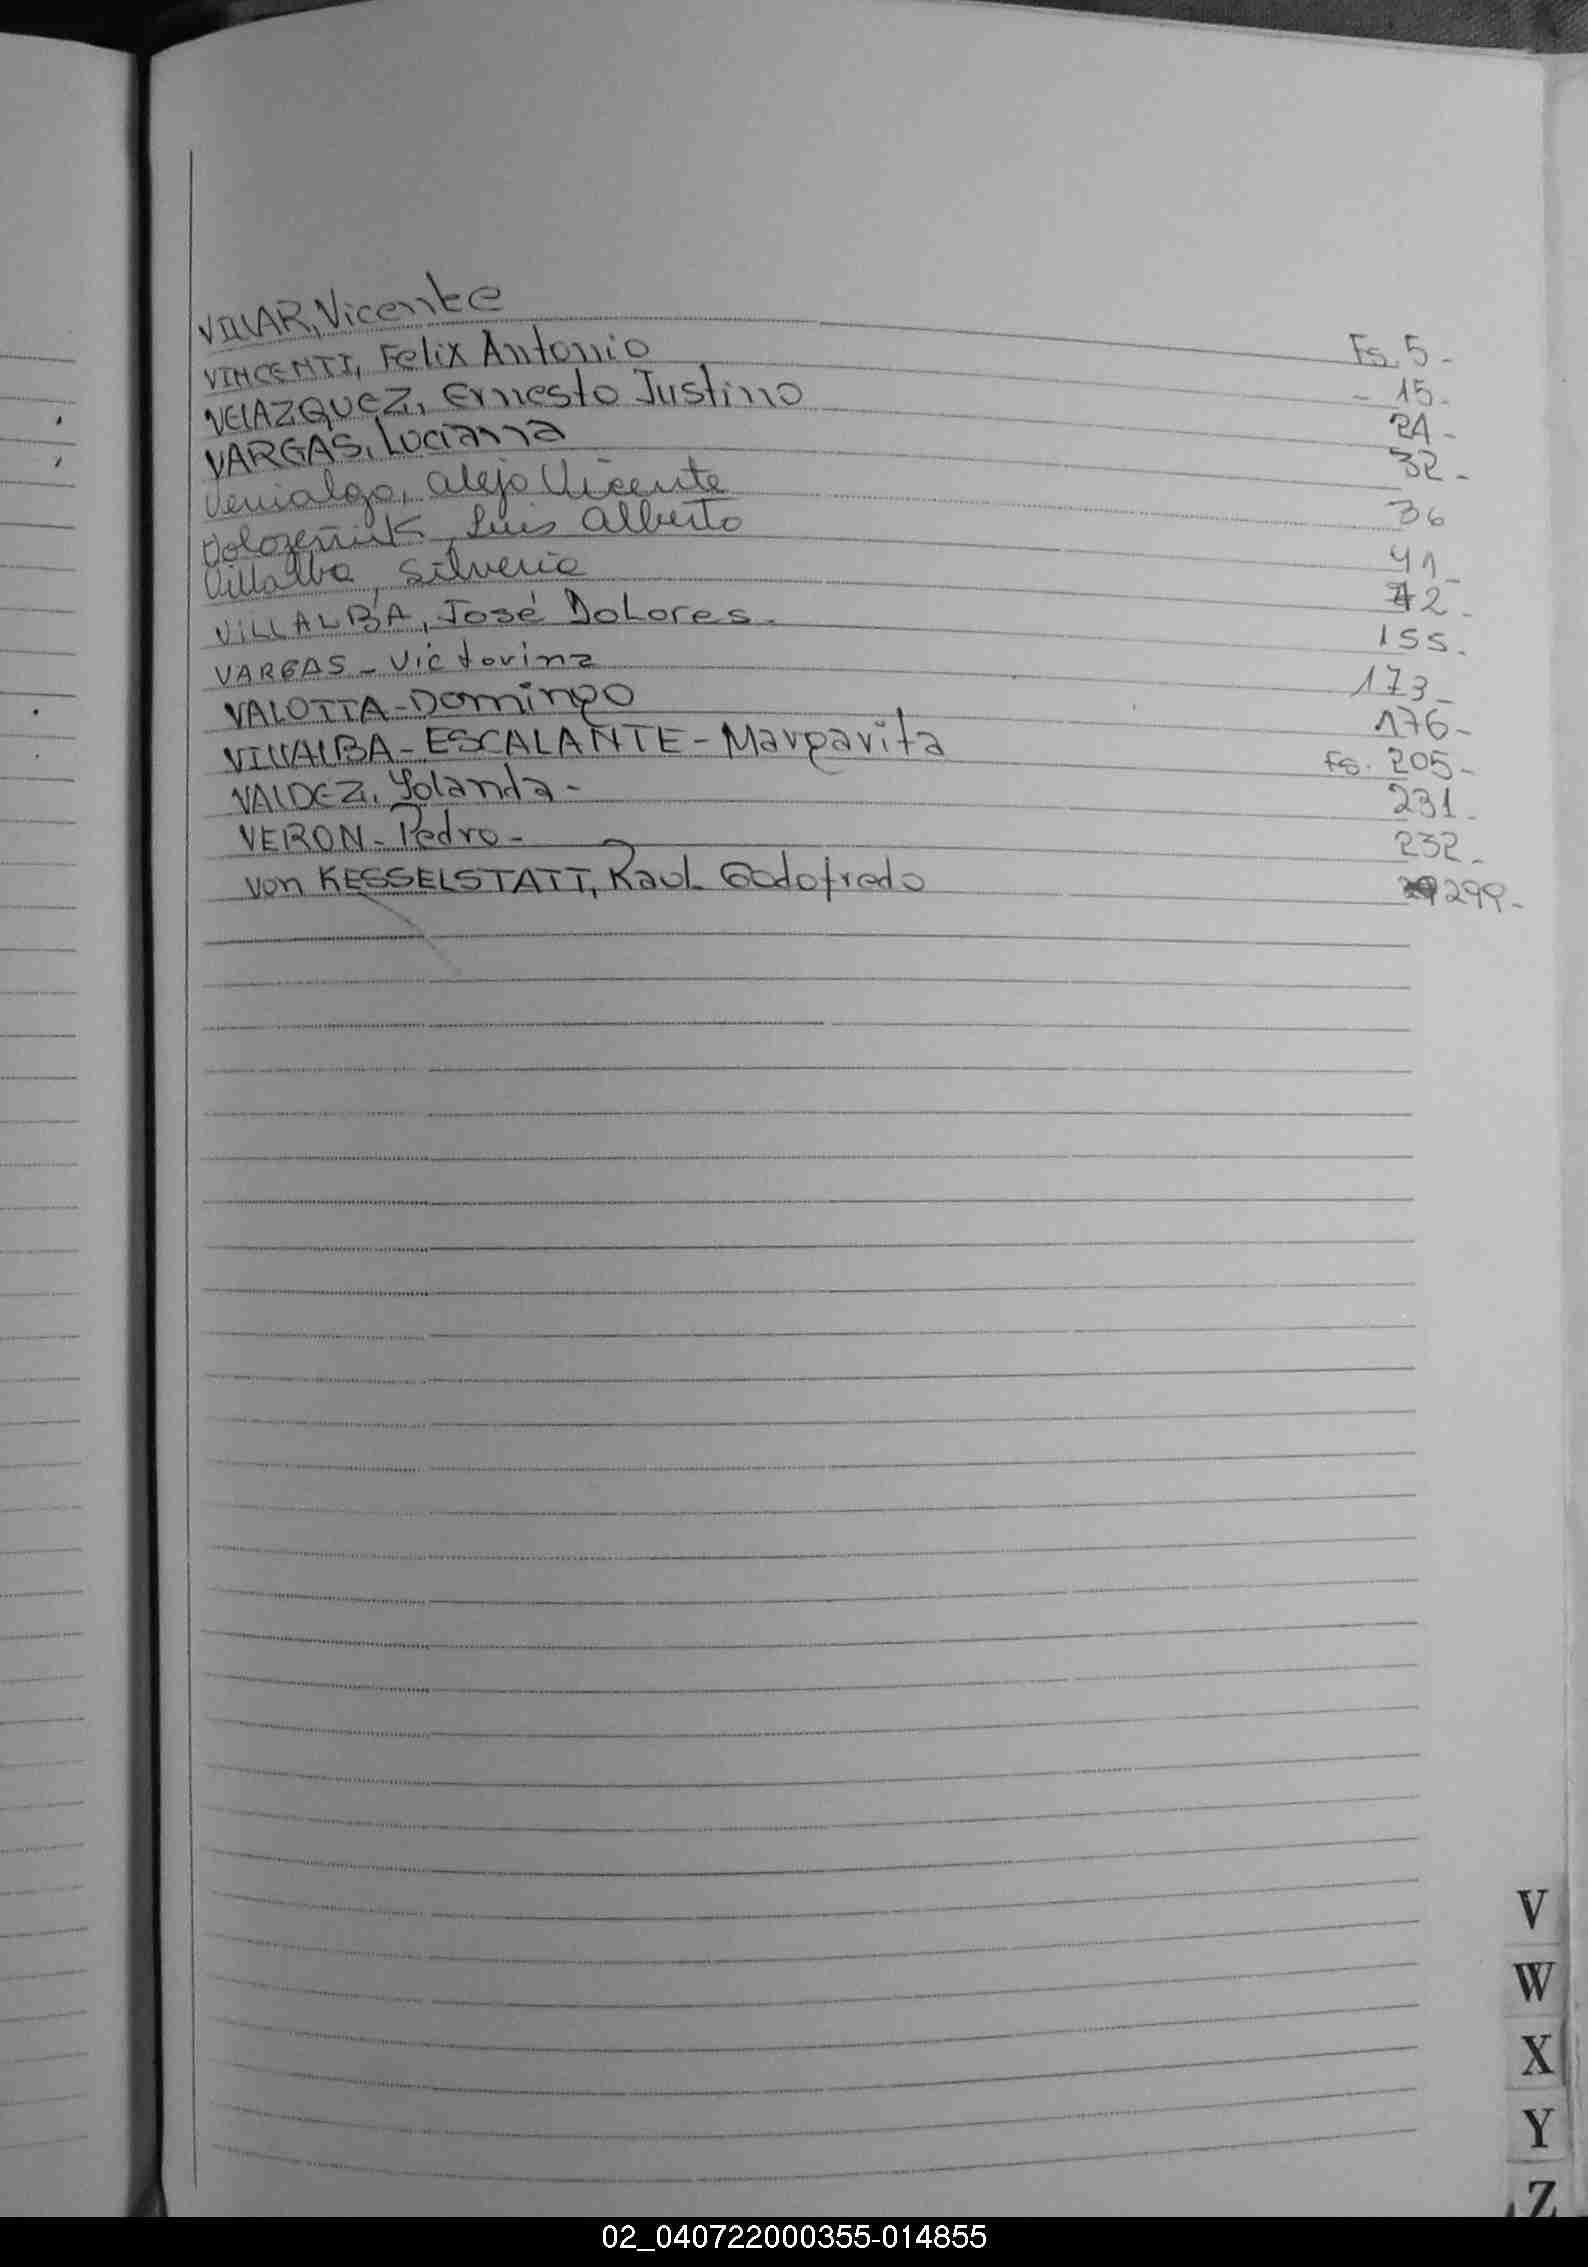 VILLAR, Vicente Fs. 5-
VINCENTI, Felix Antonio - 15-
VELAZQUEZ, Ernesto Justino 24-
VARGAS, Luciana 32-
Venialgo, Alejo Vicente 36
Luis Alberto 41-
Villalba, Silveria 42-
VILLALBA, José Dolores. 155.
VARGAS - Victorina 173-
VALOTTA - Domingo 176-
VILLALBA - ESCALANTE - Margarita Fs. 205-
VALDEZ, Yolanda - 231-
VERON - Pedro - 232-
von KESSELSTATT, Raul Godofredo 299-
V
W
X
Y
Z
02_040722000355-014855